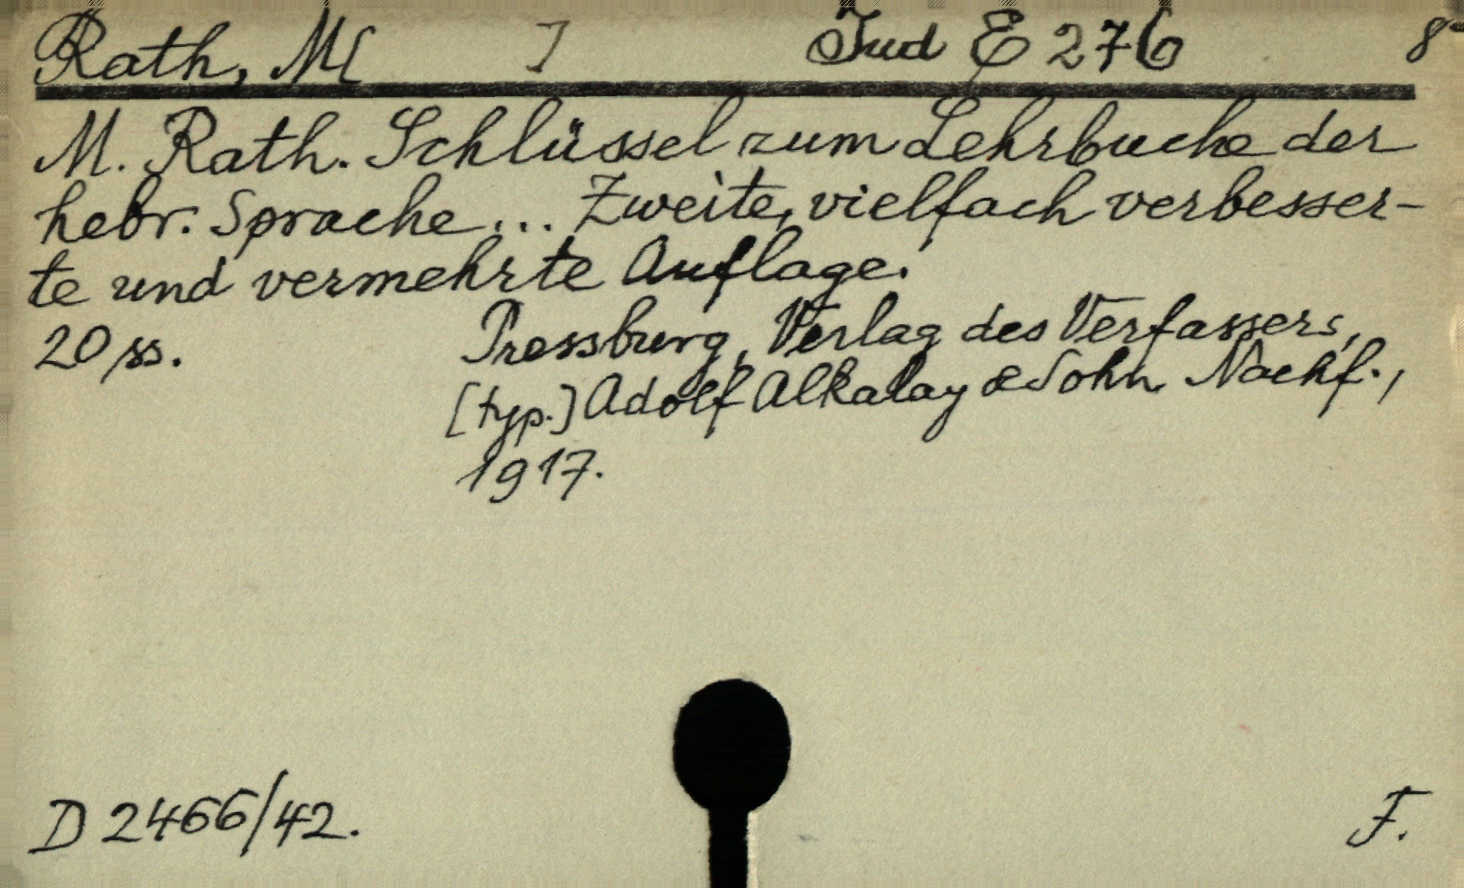 Rath, M[ ] Jud E 276 8°
M. Rath. Schlüssel zum Lehrbuche der
hebr. Sprache... Zweite, vielfach verbesser-
te und vermehrte Auflage.
20 ss. Pressburg, Verlag des Verfassers,
[typ.] Adolf Alkalay & Sohn Nachf.,
1917.
D 2466/42. F.